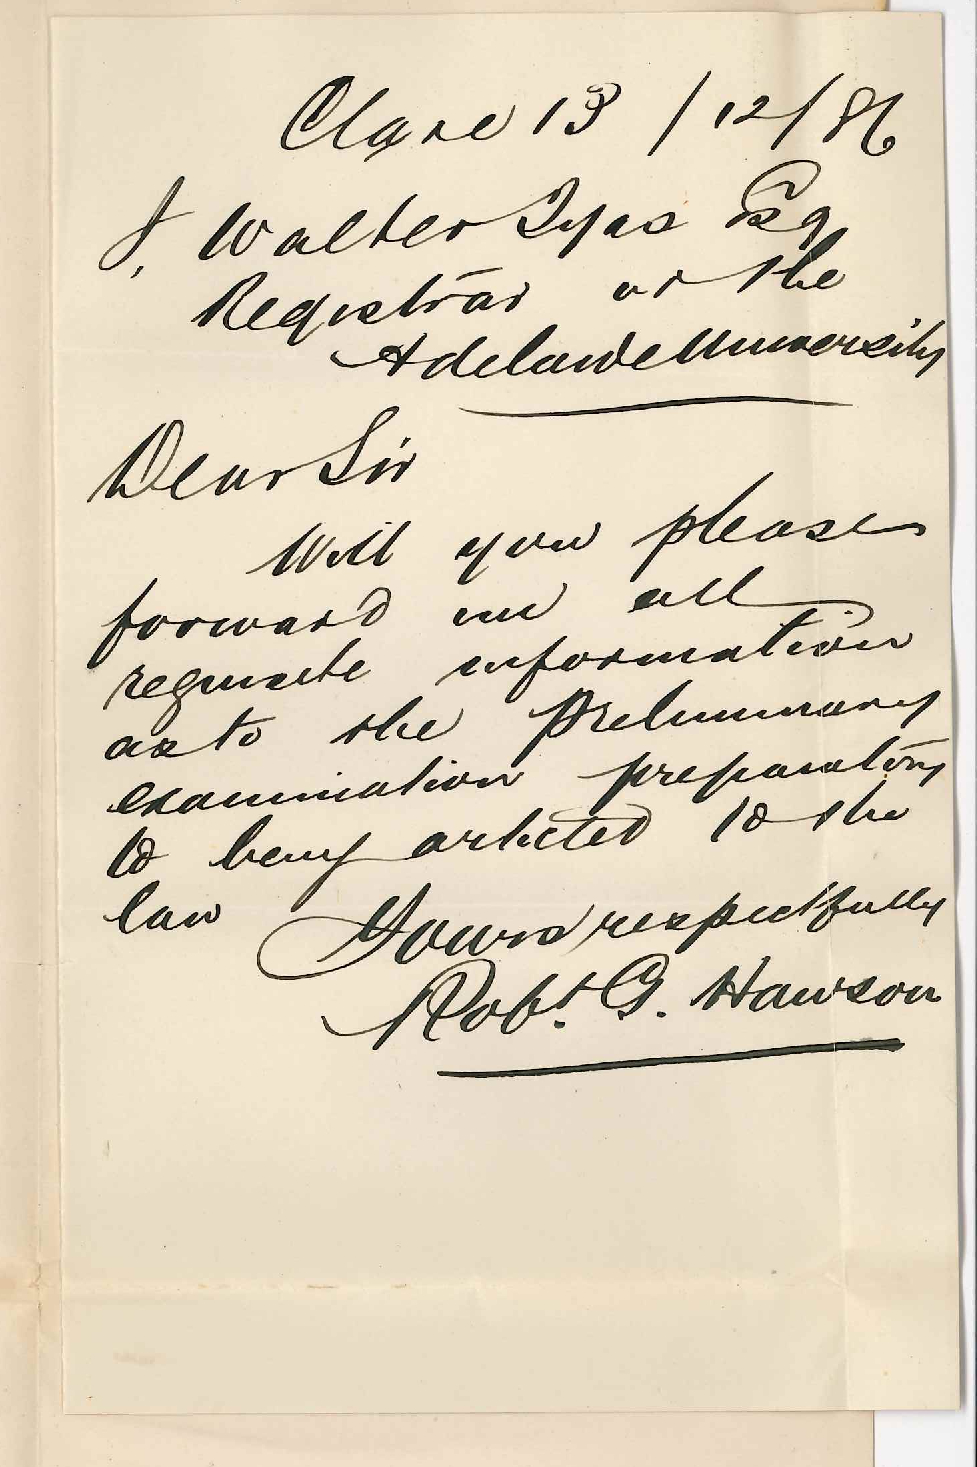 Clare 13/12/86
J. Walter Tyas Esq
Registrar of the
Adelaide University
Dear Sir
Will you please
forward me all
requisite information
as to the Preliminary
examination preparatory
to being articled to the
law
Yours respectfully
Robt. G. Hawson